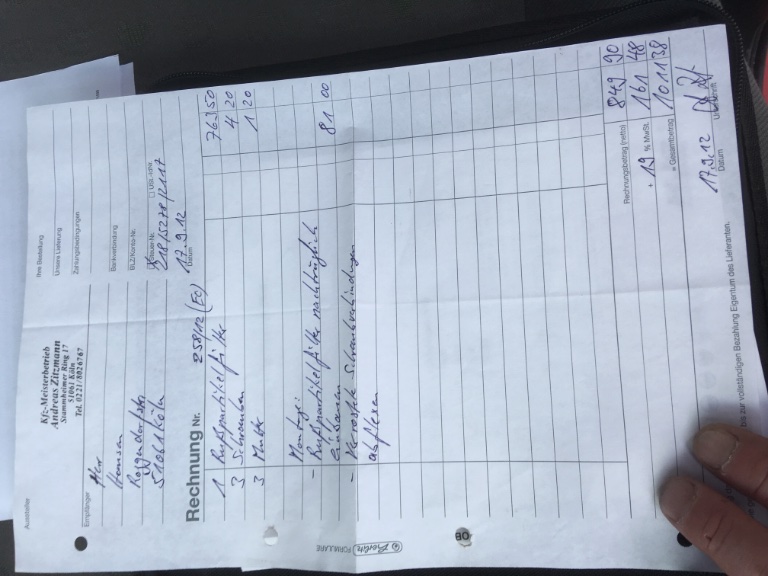 Aussteller
Kfz-Meisterbetrieb
Andreas Zitzmann
Stammheimer Ring 17
51061 Köln
Tel. 0221/8026767
Ihre Bestellung
Unsere Lieferung
Zahlungsbedingungen
Bankverbindung
BLZ/Konto-Nr.
Steuer-Nr. USt.-IdNr.
218/5278/2117
Empfänger
Herr
Hansen
51061 Köln
Rechnung Nr. 258/12 (Ec) 17.9.12
Datum
1 Rußpartikelfilter 763 50
3 Schrauben 4 20
3 Mutter 1 20
Montage:
- Rußpartikelfilter nachträglich
einbauen 81 00
- Verrostete Schraubverbindungen
abflexen
Rechnungsbetrag (netto) 849 90
+ 19 % MwSt. 161 48
= Gesamtbetrag 1011 38
17.9.12
Datum Unterschrift
bis zur vollständigen Bezahlung Eigentum des Lieferanten.
FORMULARE